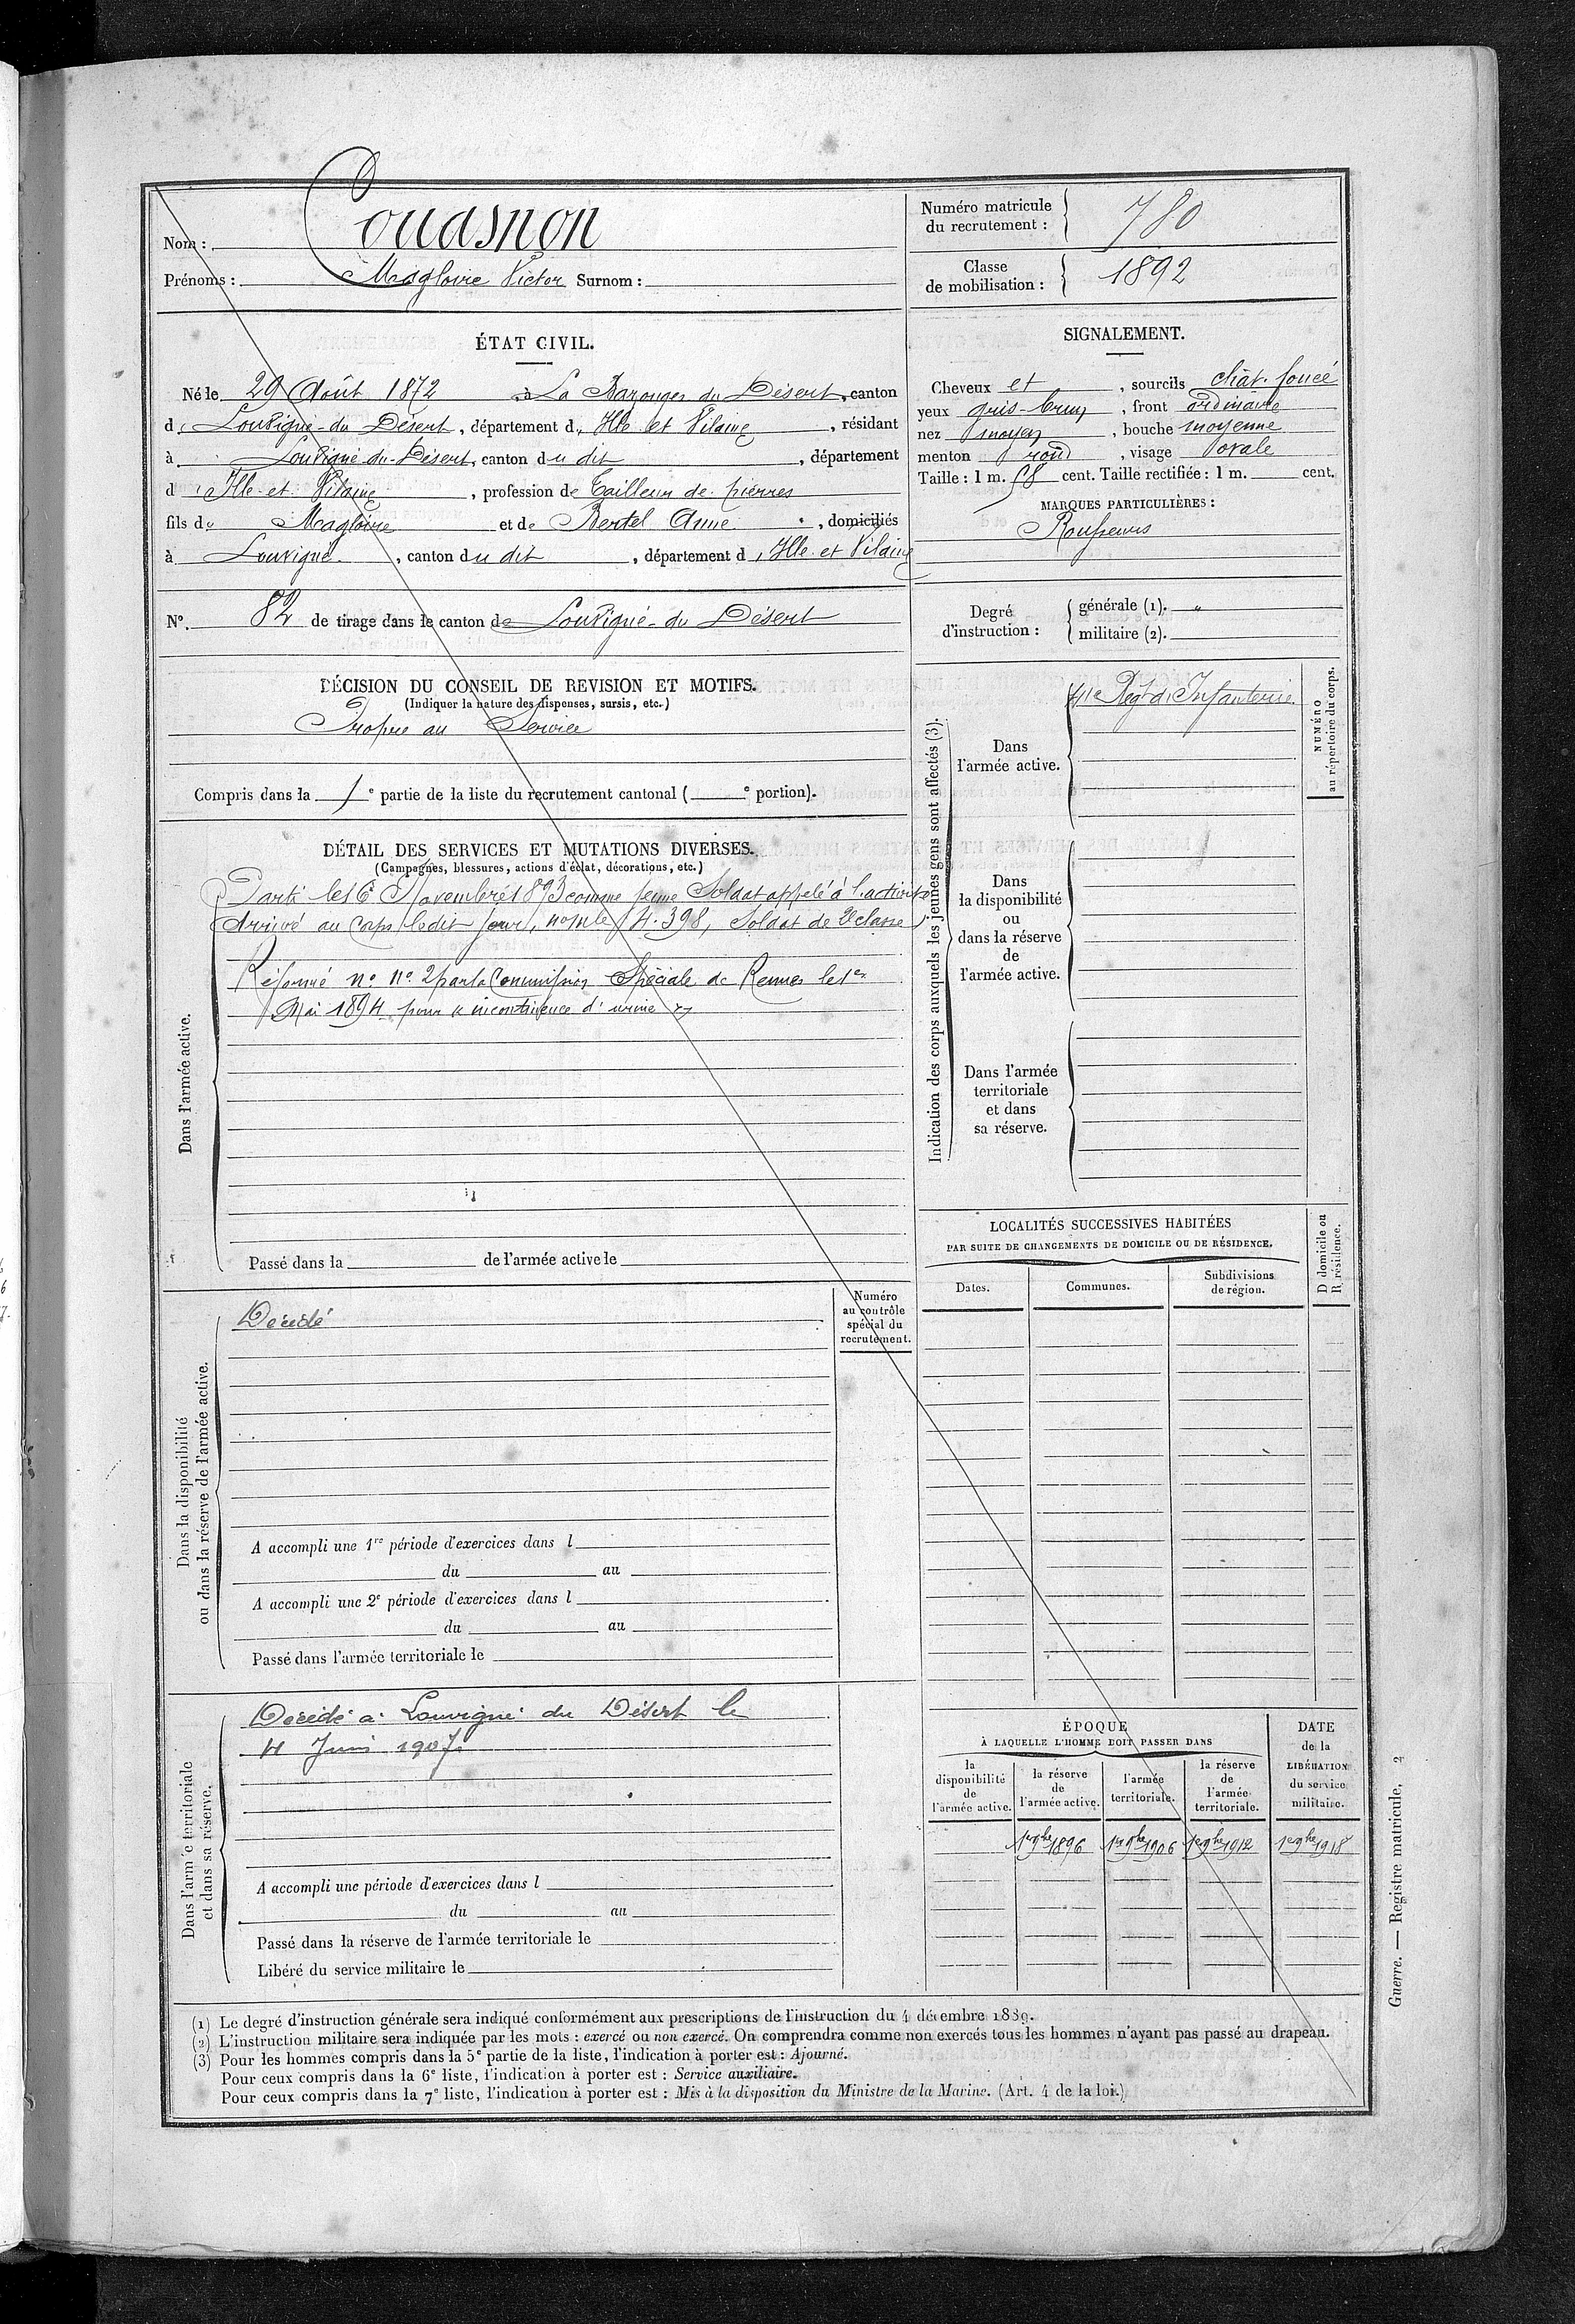 Nom : Couasnon
Prénoms : Magloire Victor Surnom :
Numéro matricule du recrutement : 780
Classe de mobilisation : 1892
ÉTAT CIVIL.
Né le 29 Août 1872 à La Bazouges du Désert, canton
d Louvigné-du Désert, département d'Ille et Vilaine, résidant
à Louvigné-du-Désert, canton du dit, département
d'Ille-et-Vilaine, profession de Tailleur de pierres
fils de Magloire et de Bertel Anne, domiciliés
à Louvigné, canton du dit, département d'Ille et Vilaine
N° 82 de tirage dans le canton de Louvigné-du Désert
SIGNALEMENT.
Cheveux et, sourcils chât. foncé
yeux gris-brun, front ordinaire
nez moyen, bouche moyenne
menton rond, visage ovale
Taille : 1 m. 58 cent. Taille rectifiée : 1 m. cent.
MARQUES PARTICULIÈRES :
Rousseurs
Degré d'instruction : générale (1). "
militaire (2).
DÉCISION DU CONSEIL DE REVISION ET MOTIFS.
(Indiquer la nature des dispenses, sursis, etc.)
Propre au Service
Compris dans la 1e partie de la liste du recrutement cantonal ( e portion).
DÉTAIL DES SERVICES ET MUTATIONS DIVERSES.
(Campagnes, blessures, actions d'éclat, décorations, etc.)
Dans l'armée active.
Parti le 16 Novembre 1893 comme jeune Soldat appelé à l'activité
Arrivé au Corps le dit jour, no mle 4.398, Soldat de 2e classe
Réformé no no 2 par la Commission Spéciale de Rennes le 1er
Mai 1894 pour « incontinence d'urine »
Passé dans la de l'armée active le
Indication des corps auxquels les jeunes gens sont affectés (3).
Dans l'armée active.
41e Regt d'Infanterie.
NUMÉRO au répertoire du corps.
Dans
la disponibilité
ou
dans la réserve
de
l'armée active.
Dans l'armée
territoriale
et dans
sa réserve.
LOCALITÉS SUCCESSIVES HABITÉES
PAR SUITE DE CHANGEMENTS DE DOMICILE OU DE RÉSIDENCE.
Dates. Communes. Subdivisions de région.
D domicile ou R résidence.
Dans la disponibilité
ou dans la réserve de l'armée active.
Décédé
Numéro
au contrôle
spécial du
recrutement.
A accompli une 1re période d'exercices dans l
du au
A accompli une 2e période d'exercices dans l
du au
Passé dans l'armée territoriale le
Dans l'armée territoriale
et dans sa réserve.
Décédé à Louvigné du Désert le
4 Juin 1907.
A accompli une période d'exercices dans l
du au
Passé dans la réserve de l'armée territoriale le
Libéré du service militaire le
ÉPOQUE
À LAQUELLE L'HOMME DOIT PASSER DANS
la disponibilité de l'armée active.
la réserve de l'armée active.
l'armée territoriale.
la réserve de l'armée territoriale.
DATE de la LIBÉRATION du service militaire.
1er 9bre 1896 1er 9bre 1906 1er 9bre 1912 1er 9bre 1918
(1) Le degré d'instruction générale sera indiqué conformément aux prescriptions de l'instruction du 4 décembre 1889.
(2) L'instruction militaire sera indiquée par les mots : exercé ou non exercé. On comprendra comme non exercés tous les hommes n'ayant pas passé au drapeau.
(3) Pour les hommes compris dans la 5e partie de la liste, l'indication à porter est : Ajourné.
Pour ceux compris dans la 6e liste, l'indication à porter est : Service auxiliaire.
Pour ceux compris dans la 7e liste, l'indication à porter est : Mis à la disposition du Ministre de la Marine. (Art. 4 de la loi.)
Guerre. — Registre matricule. 2